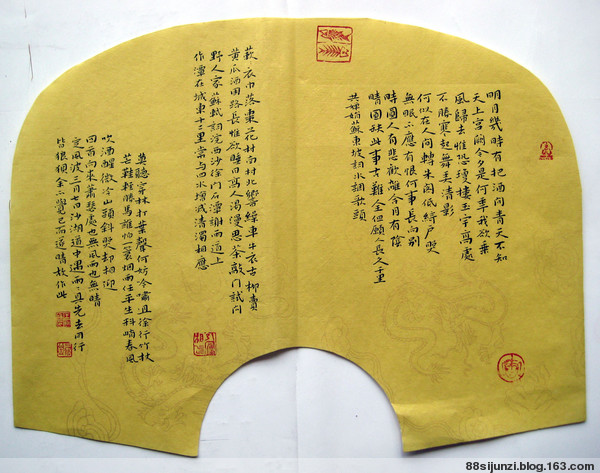 明月幾時有把酒问青天不知
天上宫闕今夕是何年我欲乘
風歸去惟恐瓊樓玉宇高處
不勝寒起舞弄清影
何似在人间轉朱阁低綺户照
無眠不應有恨何事長向别
時圓人有悲歡離合月有陰
晴圓缺此事古難全但願人長久千里
共嬋娟蘇東坡詞水調歌頭
蔌〻衣巾落棗花村南村北響繰車牛衣古柳賣
黄瓜酒困路長惟欲睡日高人渴漫思茶敲门試问
野人家蘇軾詞浣西沙徐门石潭謝雨道上
作潭在城東十二里常与四水增减清濁相應
莫聽穿林打葉聲何妨吟嘯且徐行竹杖
芒鞋輕勝馬誰怕一蓑烟雨任平生料峭春風
吹酒醒微冷山頭斜照却相迎
回首向來蕭瑟處也無風雨也無晴
定風波三月七日沙湖道中遇雨〻具先去同行
皆狼狽余不覺已而遂晴故作此
88sijunzi.blog.163.com